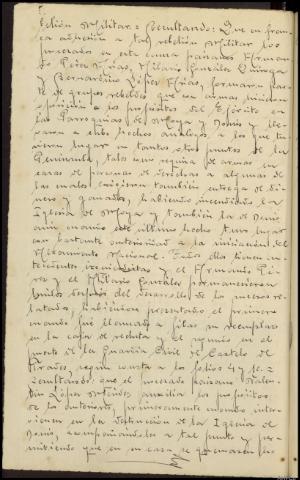 belión Militar = Resultando: Que en fran-
ca adhesión a tal rebelión Militar los
procesados en esta causa paisanos Arman-
do Pérez Frías, Hilario González Quiroga
y Bernardino López Frías, formaron par-
te de grupos rebeldes que en armas hicieron
oposición a los propósitos del Ejército en
las Parroquias de Moya y Donis y lle-
garon a cabo hechos análogos a los que tu-
vieron lugar en tantos otros puntos de la
Península, tales como requisa de armas en
casas de personas de derechas a algunas de
las cuales exigieron también entrega de di-
nero y ganados, habiendo incendiado la
Iglesia de Moya y también la de Donis,
aun cuando este último hecho tuvo lugar
con bastante anterioridad a la iniciación del
Alzamiento Nacional. Todos ellos tienen an-
tecedentes izquierdistas y el Armando Pé-
rez y el Hilario González permanecieron
huidos después del desarrollo de los sucesos re-
latados, habiéndose presentado el primero
cuando fué llamado a filas su reemplazo
en la caja de recluta y el segundo en el
puesto de la Guardia Civil de Castelo de
según consta a los folios 47 y
Resultando: que el procesado paisano
López Santodes auxilió los propósitos
de los anteriores, primeramente cuando inter-
vienen en la destrucción de la Iglesia de
Donis, acompañándoles a tal punto y per-
mitiendo que en su casa se quemaran los